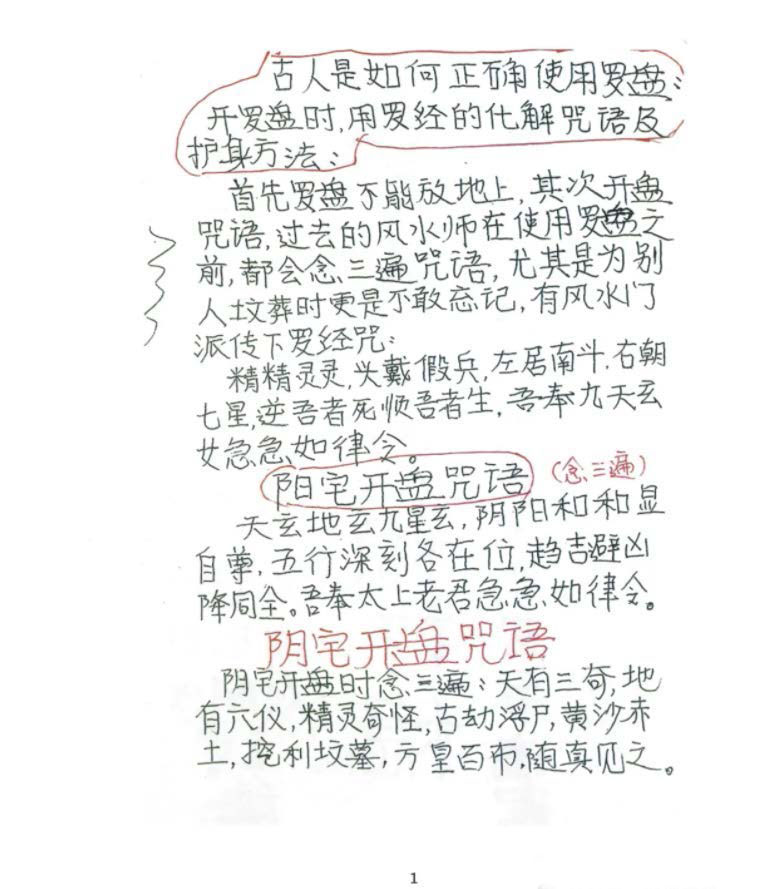 古人是如何正确使用罗盘:
开罗盘时,用罗经的化解咒语及
护身方法:
首先罗盘不能放地上,其次开盘
咒语,过去的风水师在使用罗盘之
前,都会念三遍咒语,尤其是为别
人坟葬时更是不敢忘记,有风水门
派传下罗经咒:
精精灵灵,头戴假兵,左居南斗.右朝
七星,逆吾者死顺吾者生,吾奉九天玄
女急急如律令。
阳宅开盘咒语(念三遍)
天玄地玄九星玄,阴阳和和显
自尊.五行深刻各在位,趋吉避凶
降同全。吾奉太上老君急急如律令。
阴宅开盘咒语
阴宅开盘时念三遍:天有三奇,地
有六仪,精灵奇怪,古劫浮尸,黄沙赤
土,挖利坟墓,方皇百布,随真见之。
1